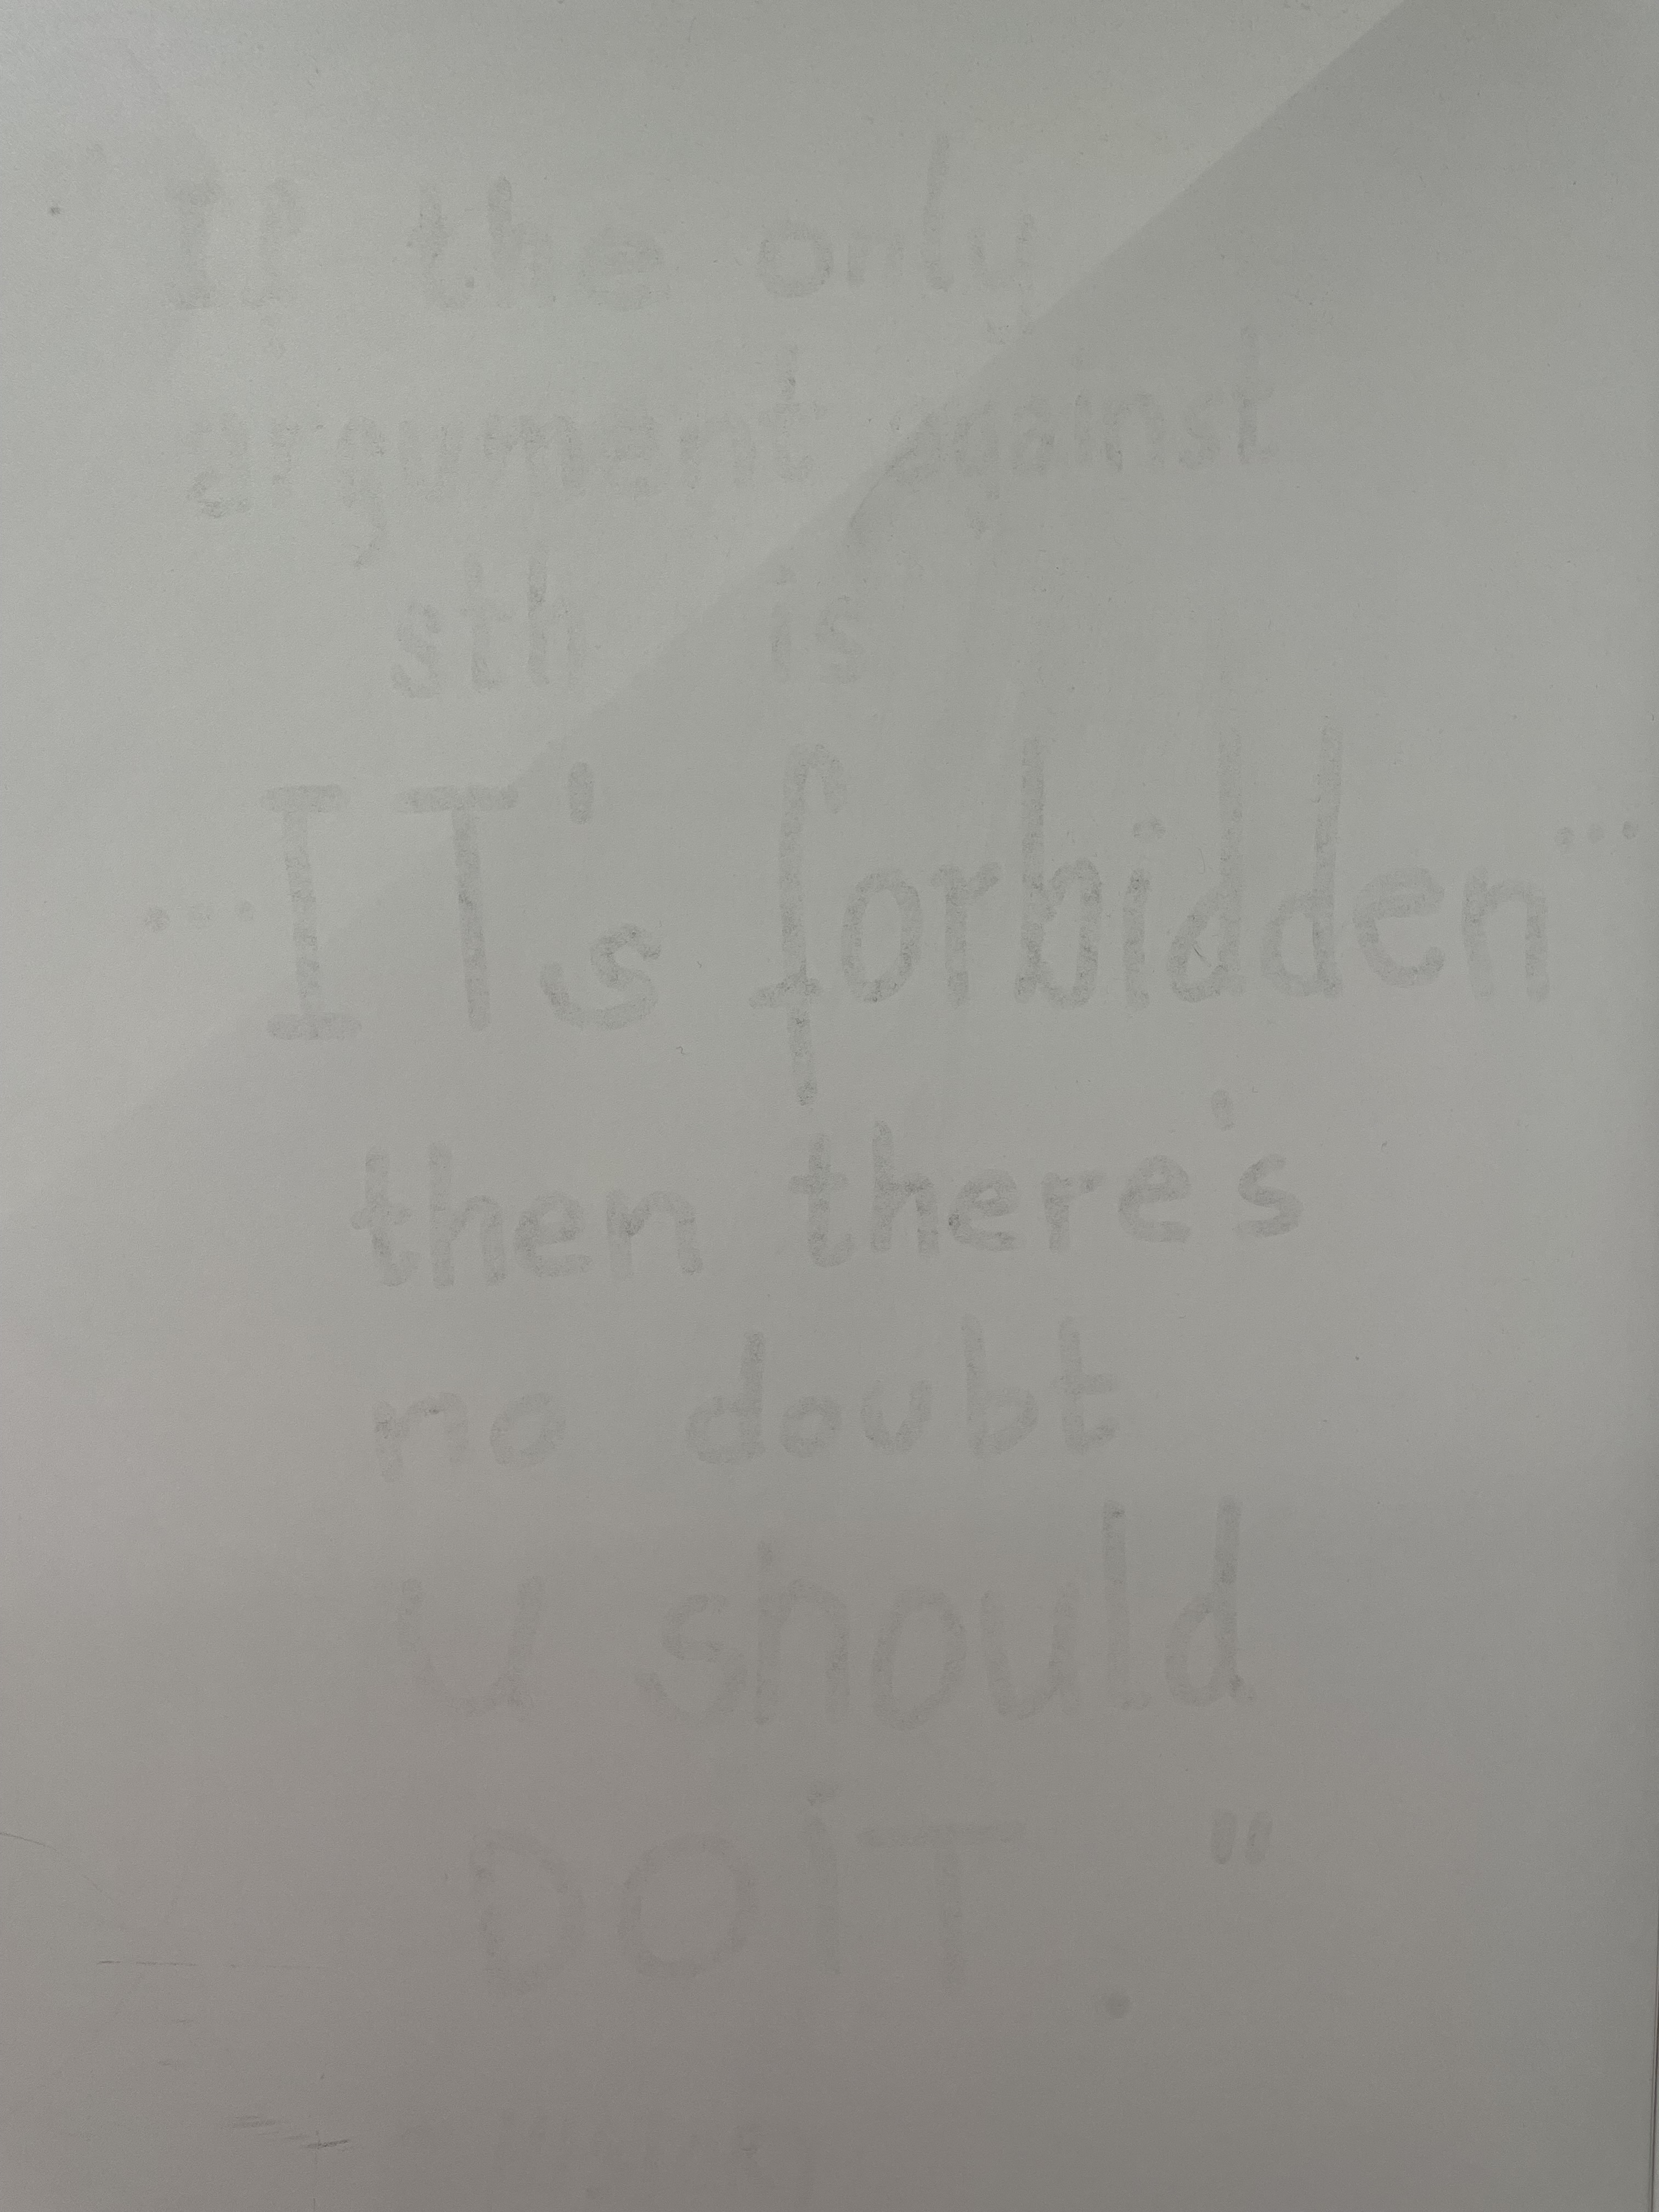 "If the only
argument against
sth is
...IT's forbidden...
then there's
no doubt
u should
DOiT."